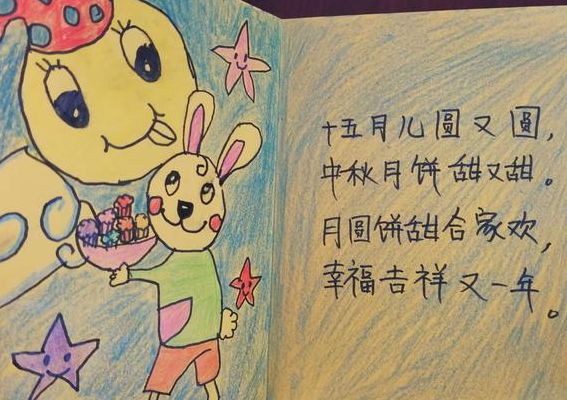 十五月儿圆又圆，
中秋月饼甜又甜。
月圆饼甜合家欢，
幸福吉祥又一年。